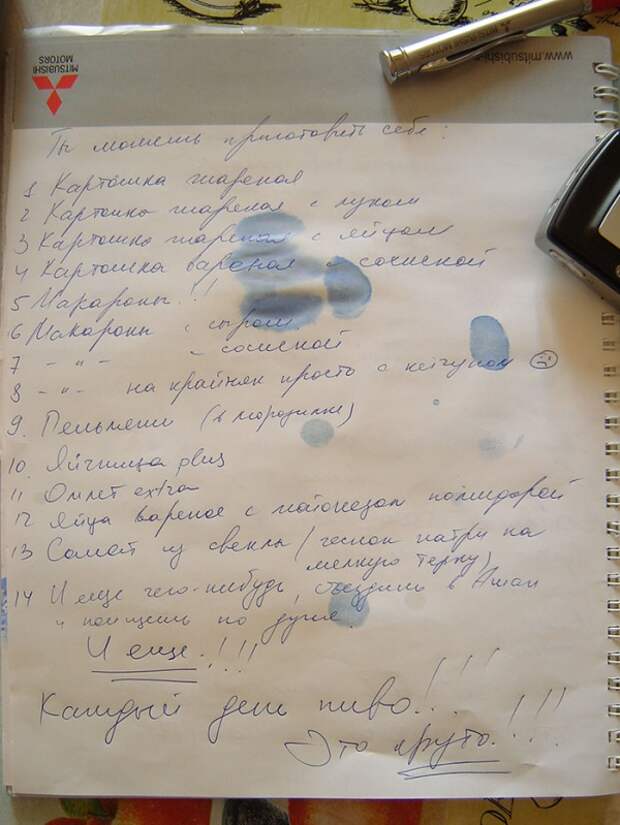 MITSUBISHI
MOTORS
www.mitsubishi-
Ты можешь приготовить себе:
1 Картошка жареная
2 Картошка жареная с луком
3 Картошка жареная с яйцом
4 Картошка вареная с сосиской
5 Макароны!!
6 Макароны с сыром
7 -"- с сосиской
8 -"- на крайняк просто с кетчупом
9. Пельмени (в морозилке)
10. Яйчница plus
11 Омлет extra
12 Яйца вареное с майонезом помидорой
13 Салат из свеклы (чеснок натри на
мелкую терку)
14 И еще чего-нибудь, съездишь в Ашан
и поищешь по душе.
И еще!!!
Каждый день пиво!!!
Это круто!!!